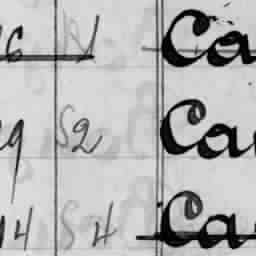 16 1 Ca
9 S2 Ca
14 S 4 Ca